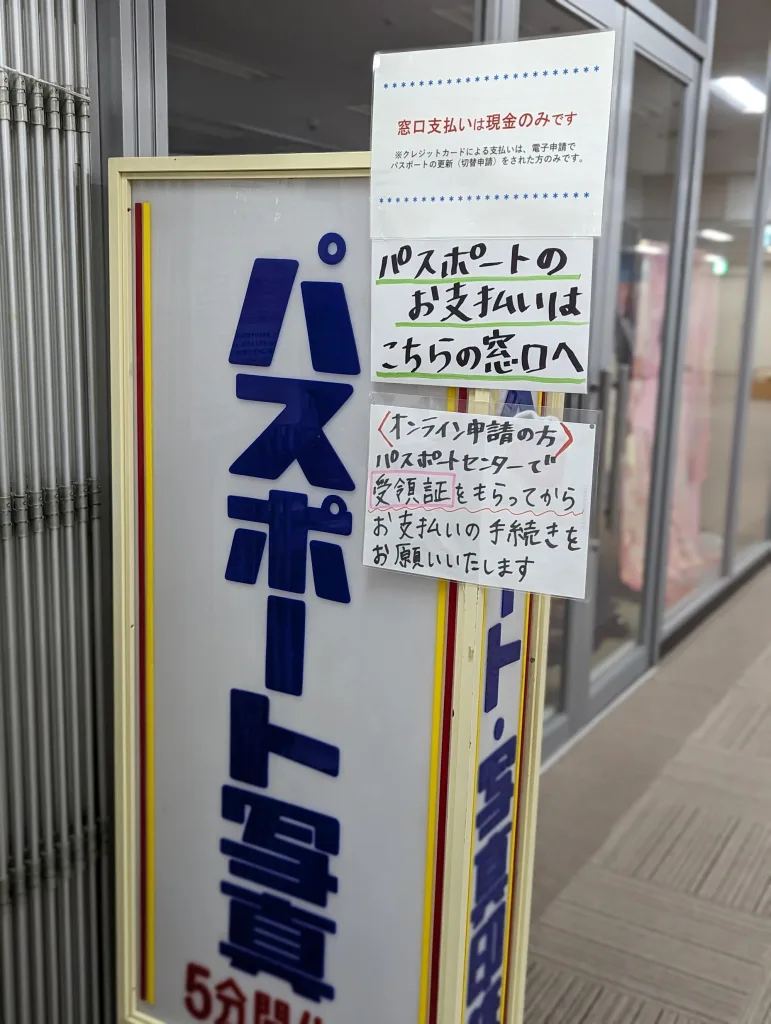 窓口支払いは現金のみです
※クレジットカードによる支払いは、電子申請で
パスポートの更新（切替申請）をされた方のみです。
パスポートの
お支払いは
こちらの窓口へ
〈オンライン申請の方〉
パスポートセンターで
受領証をもらってから
お支払いの手続きを
お願いいたします
パスポート写真
5分間
ト・写真印